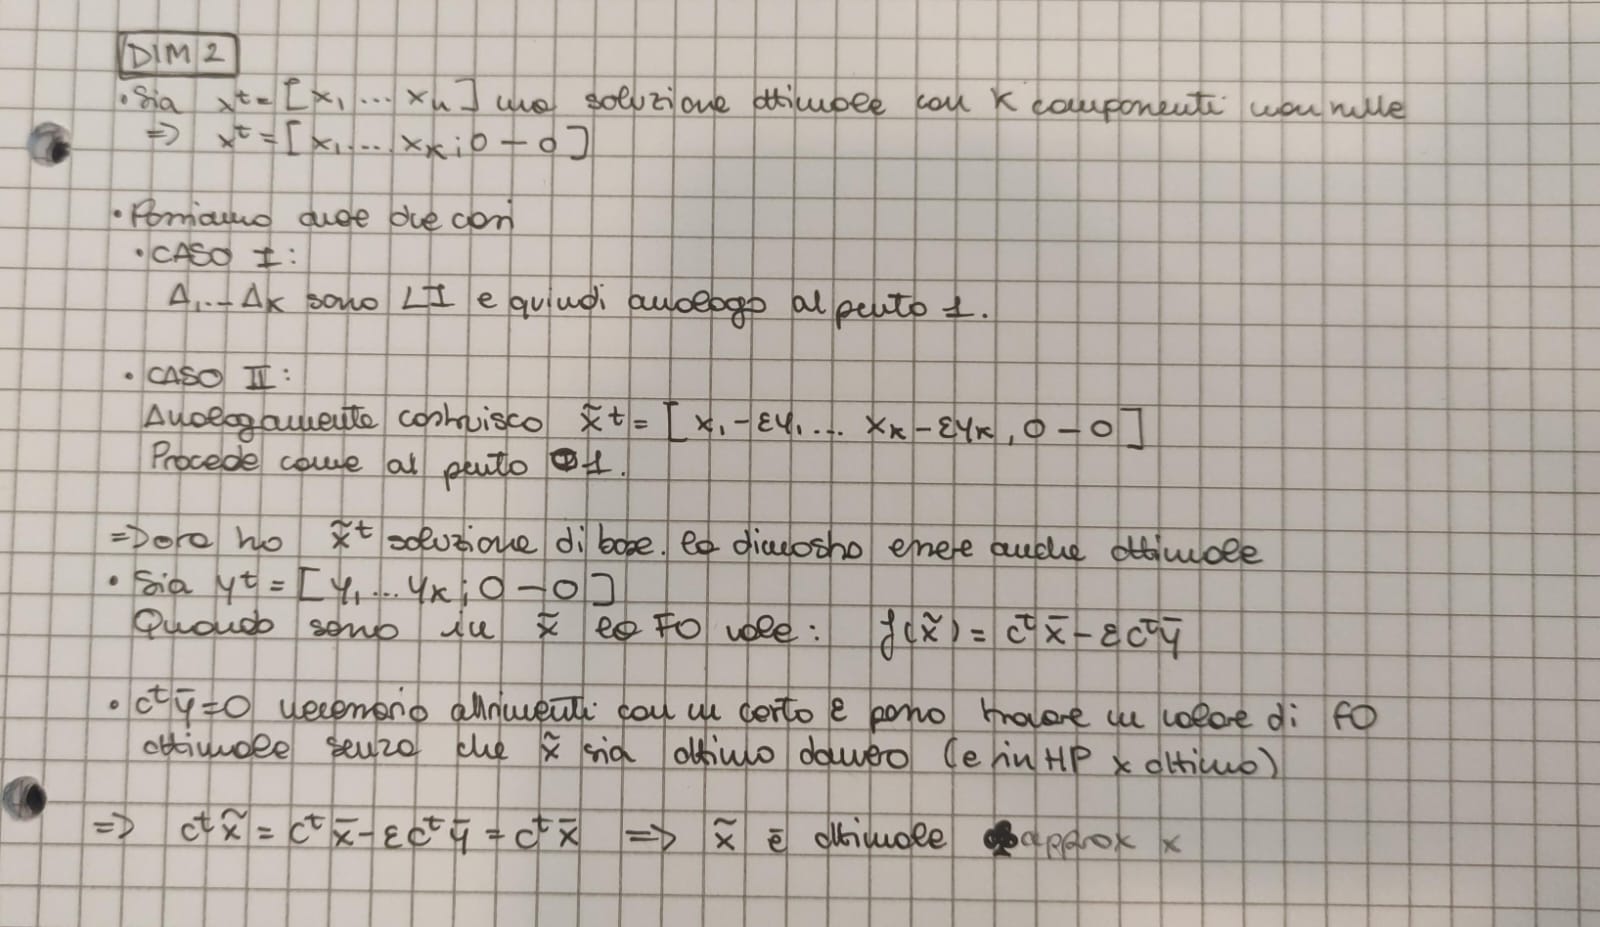 DIM 2
• Sia x^t = [x₁ ... xₙ] una soluzione ottimale con K componenti non nulle
=> x^t = [x₁ ... x_K ; 0 — 0]
• Poniamo due casi
• CASO I:
A₁ ... A_K sono LI e quindi analogo al punto 1.
• CASO II:
Analogamente costruisco x̃^t = [x₁ - εy₁ ... x_K - εy_K , 0 — 0]
Procede come al punto 1.
=> ora ho x̃^t soluzione di base. lo dimostro essere anche ottimale
• Sia y^t = [y₁ ... y_K ; 0 — 0]
Quando sono in x̃ la FO vale: f(x̃) = c^t x̄ - ε c^t ȳ
• c^t ȳ = 0 necessario altrimenti con un certo ε posso trovare un valore di FO
ottimale senza che x̃ sia ottimo davvero (e in HP x ottimo)
=> c^t x̃ = c^t x̄ - ε c^t ȳ = c^t x̄ => x̃ è ottimale approx x